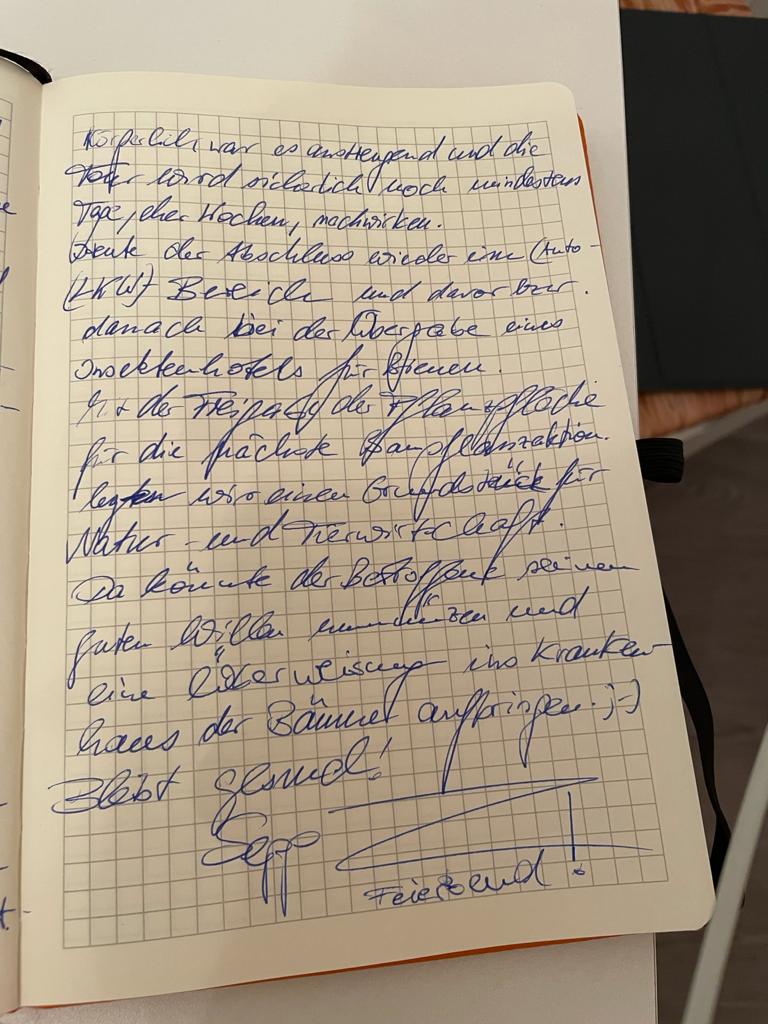 Körperlich war es anstrengend und die
Tour wird sicherlich noch mindestens
Tage, eher Wochen, nachwirken.
Heute der Abschluss wieder im (Auto-
(LKW) Bereich und davor bzw.
danach bei der Übergabe eines
Insektenhotels für Bienen.
Mit der Freigabe der Pflanzfläche
für die nächste Baumpflanzaktion.
legten wir einen Grundstück für
Natur- und Tierwirtschaft.
Da könnte der seinen
guten Willen und
eine Überweisung ins Kranken-
haus der Bäume aufbringen. ;-)
Bleibt gesund!
Sepp
Feierabend!